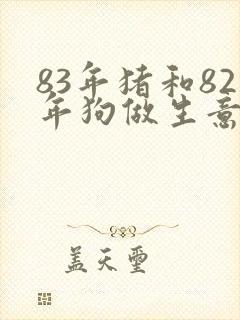 83年猪和82
年狗做生意
盖天玺